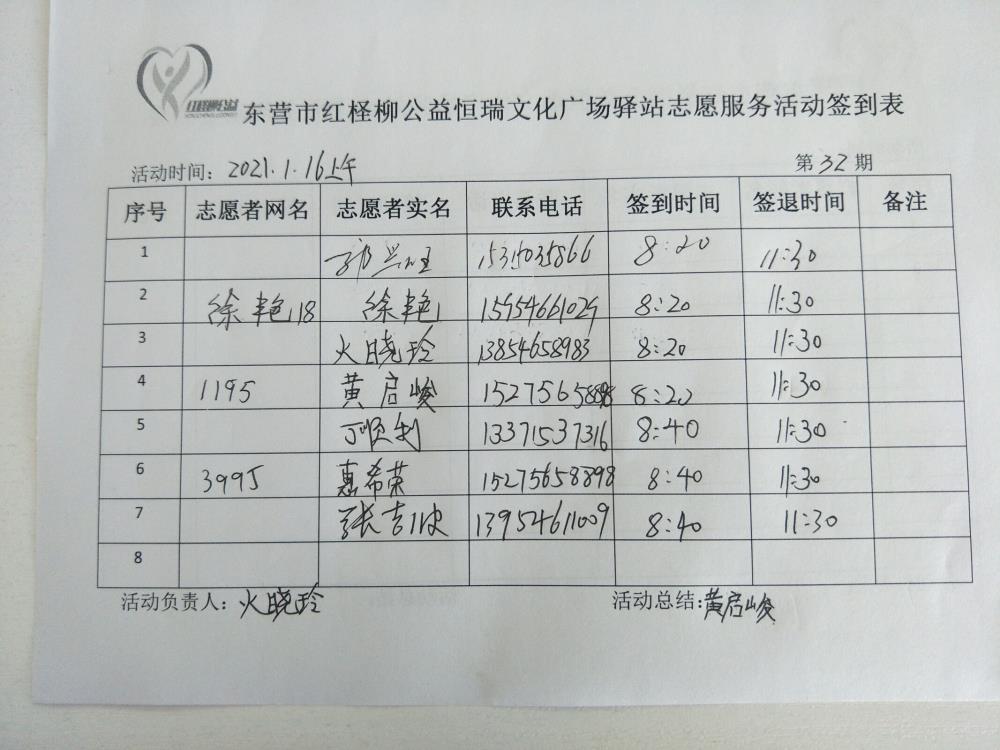 红柽柳公益
东营市红柽柳公益恒瑞文化广场驿站志愿服务活动签到表
活动时间：2021.1.16上午 第32期
序号 志愿者网名 志愿者实名 联系电话 签到时间 签退时间 备注
1 8:20 11:30
2 徐艳18 徐艳 15954661029 8:20 11:30
3 火晓玲 13854658983 8:20 11:30
4 1195 黄启峻 8:20 11:30
5 丁顺利 13371537316 8:40 11:30
6 3995 惠希荣 15275658898 8:40 11:30
7 张吉 13954611009 8:40 11:30
8
活动负责人：火晓玲 活动总结：黄启峻